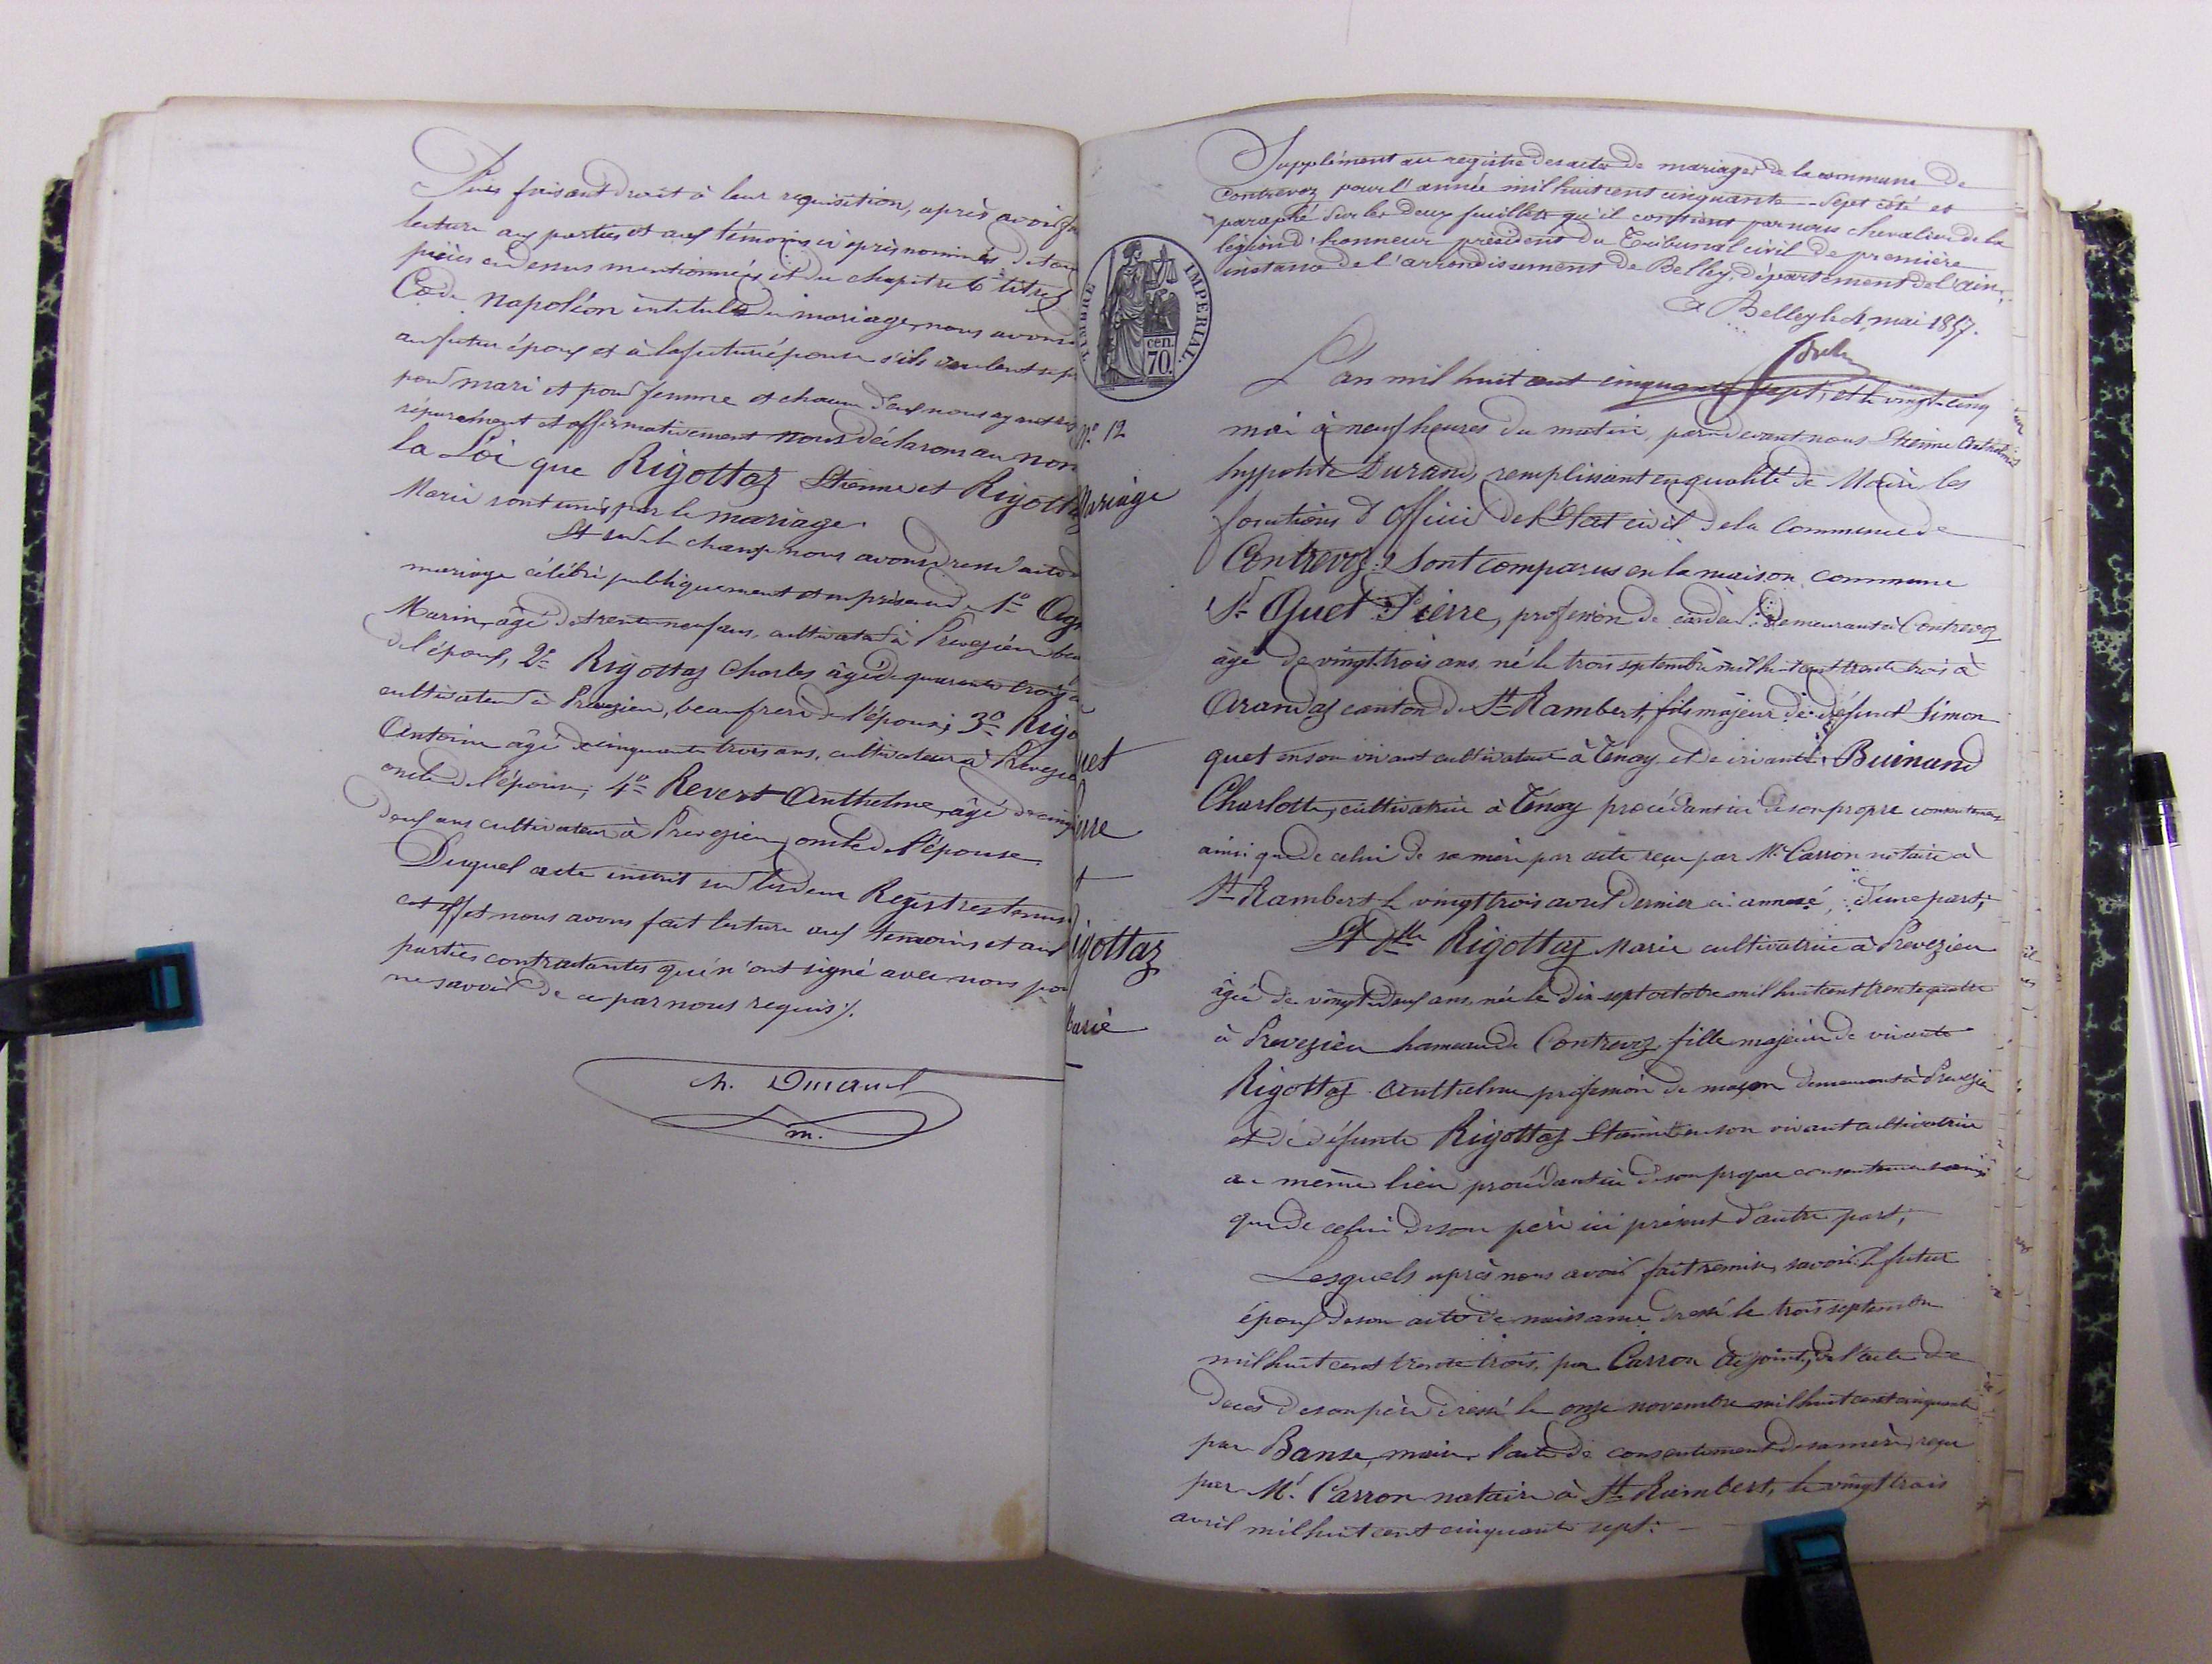 Puis faisant droit à leur requisition, après avoir
lecture aux parties et aux témoins ci après nommés
pièces ci dessus mentionnées et du chapitre 6 titre
Code Napoléon intitulé du mariage, nous avons
au futur époux et à la future épouse s'ils veulent se
pour mari et pour femme et chacun d'eux nous ayant
séparément et affirmativement nous déclarons au nom
la Loi que Rigottaz Etienne et Rigott
Marie sont unis par le mariage.
Et sur le champ nous avons dressé acte
mariage célébré publiquement et en présence 1o
Marin, âgé de trente neuf ans, cultivateur à Prevezieu
de l'époux, 2o Rigottaz Charles âgé de quarante trois
cultivateur à Prevezieu, beaufrere de l'époux; 3o Rigo
Antoine âgé de cinquante trois ans, cultivateur à Prevezie
oncle de l'épouse; 4o Revert Anthelme, âgé de cinq
deux ans cultivateur à Prevezieu oncle de l'épouse.
Duquel acte inscrit sur les deux Registres tenus
cet effet nous avons fait lecture aux temoins et aux
parties contractantes qui n'ont signé avec nous pour
ne savoir de ce par nous requis ./.
h. Durand
m.
TIMBRE IMPERIAL.
cen.
70.
No 12
Mariage
uet
ierre
et
igottaz
Marie
Supplément au registre des actes de mariages de la commune de
Contrevoz pour l'année mil huit cent cinquante-sept coté et
paraphé sur les deux feuillets qu'il contient par nous chevalier de la
légion d'honneur président du Tribunal civil de première
instance de l'arrondissement de Belley, département de l'ain.
A Belley le 4 mai 1857.
L'an mil huit cent cinquante sept, et le vingt cinq
mai à neuf heures du matin, par devant nous Etienne Anthelme
hyppolite Durand, remplissant en qualité de Maire les
fonctions d'officier de l'Etat civil de la Commune de
Contrevoz: Sont comparus en la maison commune
Sr. Quet Pierre, profession de cardeur demeurant à Contrevoz
âgé de vingt trois ans, né le trois septembre mil huit cent trente trois à
Arandas canton de St Rambert, fils majeur de défunt Simon
quet en son vivant cultivateur à Tenay et de vivante Buinand
Charlotte, cultivatrice à Tenay procédant ici de son propre consentement
ainsi que de celui de sa mère par acte reçu par Me Carron notaire à
St Rambert le vingt trois avril dernier ci annexé, d'une part;
Et Dlle Rigottaz Marie cultivatrice à Prevezieu
âgée de vingt deux ans, née le dix sept octobre mil huit cent trente quatre
à Prevezieu hameau de Contrevoz, fille majeure de vivante
Rigottaz Anthelme profession de maçon demeurant à Prevezieu
et de défunte Rigottaz en son vivant cultivatrice
au même lieu procédant ici de son propre consentement ainsi
que de celui de son père ici présent d'autre part;
Lesquels après nous avoir fait remise, savoir le futur
époux de son acte de naissance dressé le trois septembre
mil huit cent trente trois, par Carron adjoint, de l'acte de
décès de son père dressé le onze novembre mil huit cent cinquante
par Banse, maire, l'acte de consentement de sa mère, reçu
par Me. Carron notaire à St Rambert, le vingt trois
avril mil huit cent cinquante sept.